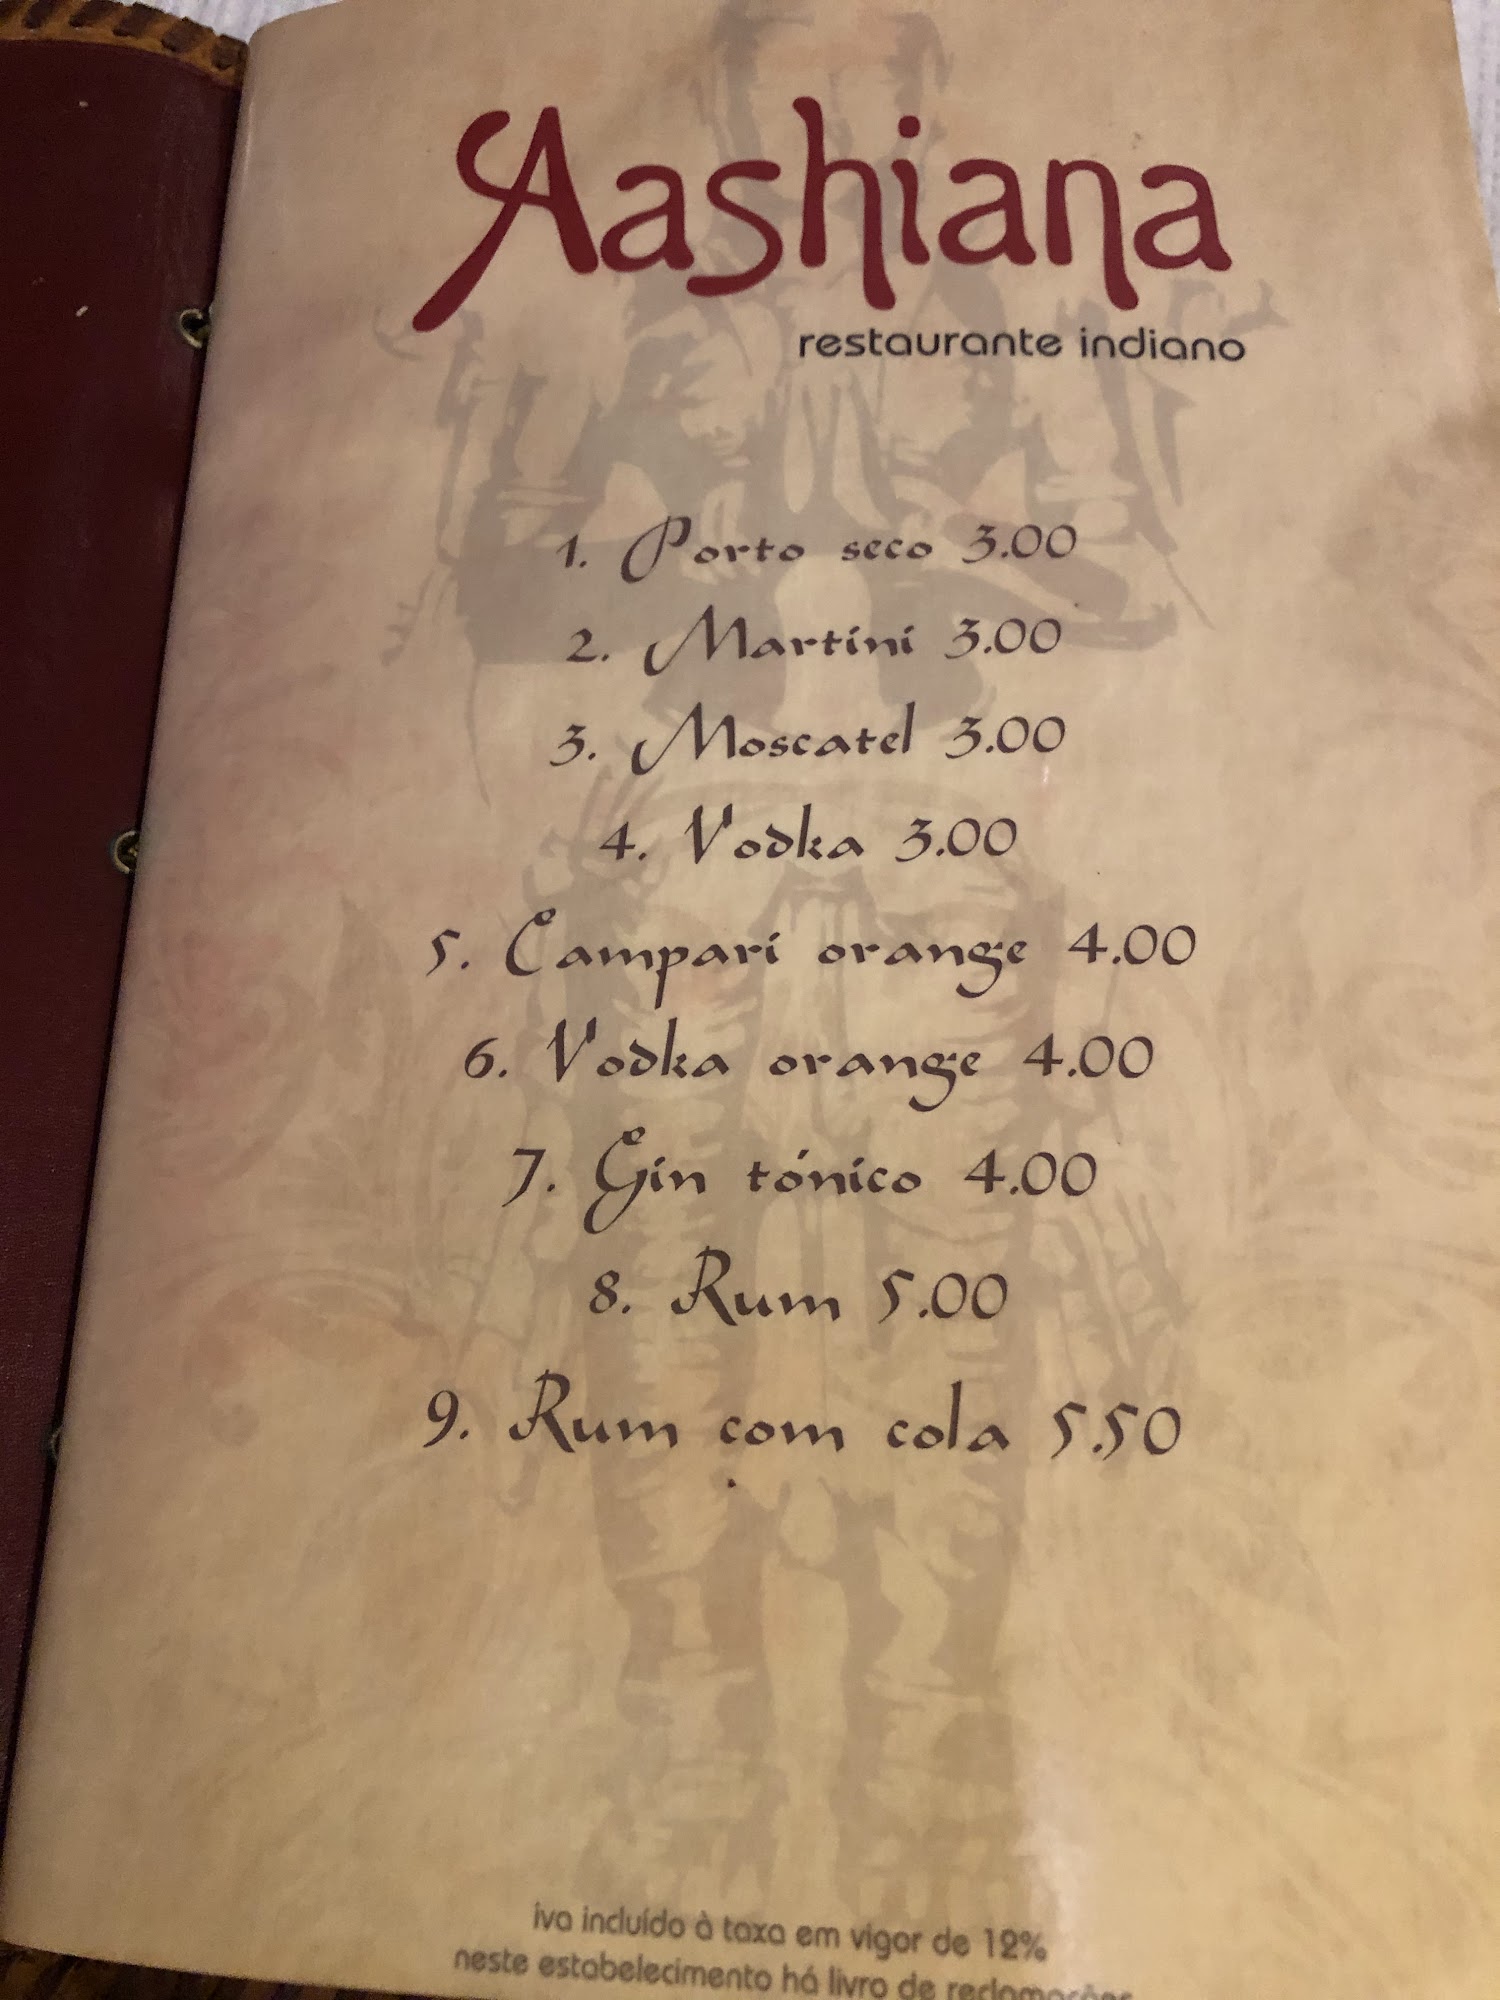 Aashiana
restaurante indiano
1. Porto seco 3.00
2. Martini 3.00
3. Moscatel 3.00
4. Vodka 3.00
5. Campari orange 4.00
6. Vodka orange 4.00
7. Gin tónico 4.00
8. Rum 5.00
9. Rum com cola 5.50
iva incluído à taxa em vigor de 12%
neste estabelecimento há livro de reclamações